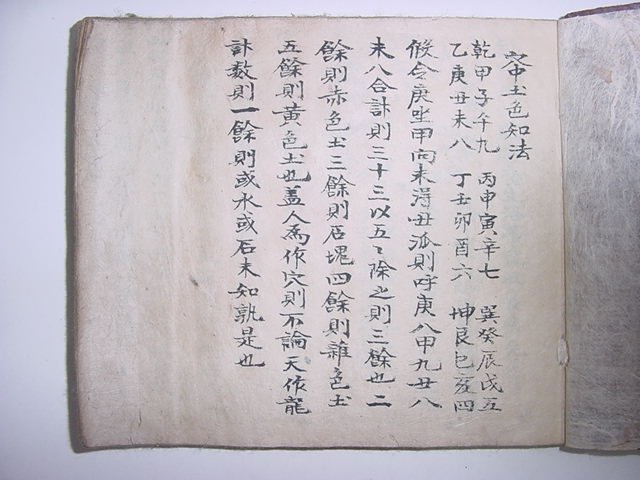 穴中土色知法
乾甲子午九 丙申寅辛七 巽癸辰戌五
乙庚丑未八 丁壬卯酉六 坤艮巳亥四
假令庚坐甲向來得丑派則呼庚八甲九丑八
未八合計則三十三以五〻除之則三餘也二
餘則赤色土三餘則石塊四餘則雜色土
五餘則黃色土也盖人爲作穴則不論天作龍
計数則一餘則或水或石未知孰是也